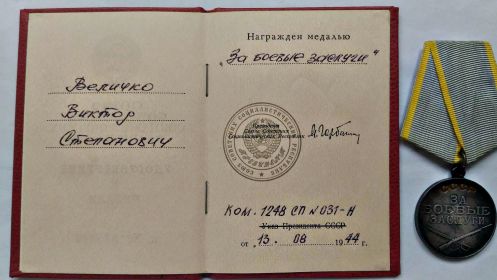 Величко
Виктор
Степанович
Награжден медалью
„За боевые заслуги“
Президент
Союза Советских
Социалистических Республик
М. Горбачев
КОМ. 1248 СП N 031-Н
Указ Президента СССР
от „13. 08 1944 г.
СССР
ЗА
БОЕВЫЕ
ЗАСЛУГИ